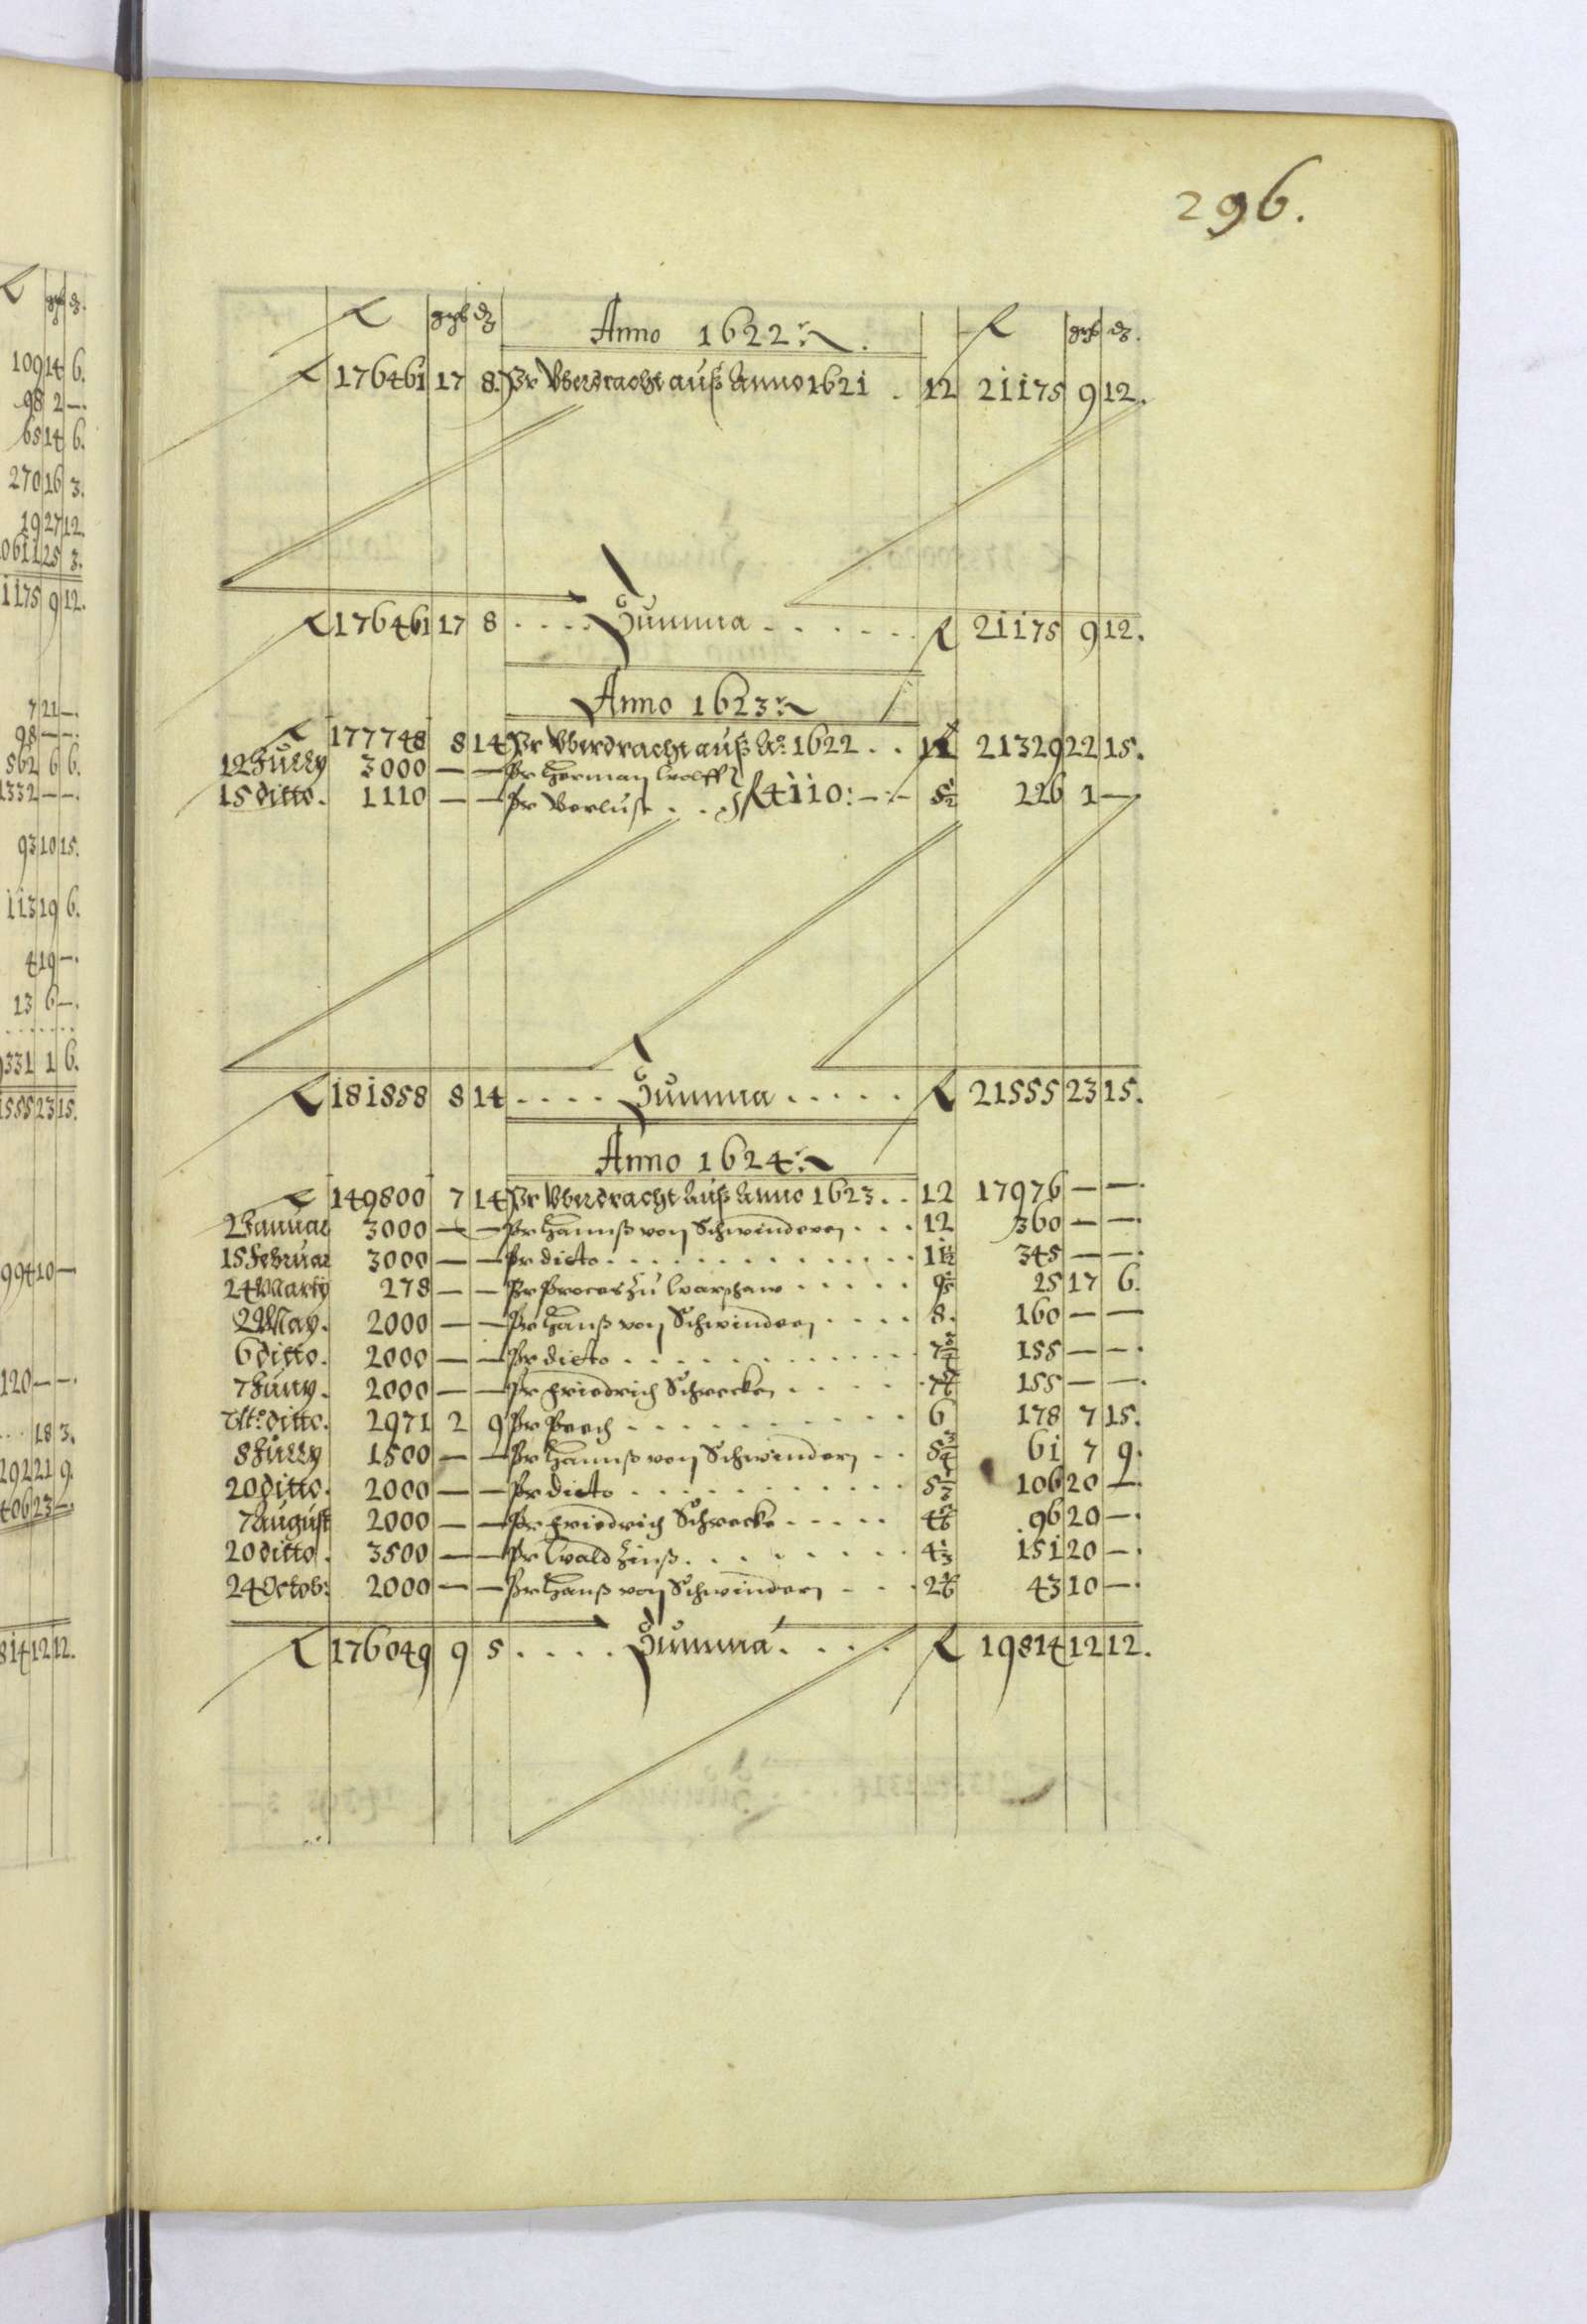 296.
gℓ ₰ Anno 1622 gℓ ₰.
176461 17 8. Pr Vberdracht auß Anno 1621 . 12 21175 9 12.
176461 17 8 .... Summa ...... 21175 9 12.
Anno 1623
177748 8 14 Pr Vberdracht auß Aº: 1622 .. 12 21329 22 15.
12 Jully 3000 — — Pr Herman Wolff
15 ditto. 1110 — — Pr Verlust .. 4110: — : — 5½ 226 1 —
181858 8 14 .... Summa ..... 21555 23 15.
Anno 1624
149800 7 14 Pr Vberdracht Auß Anno 1623 .. 12 17976 — —
2 Januar 3000 — — Pr Hannß von Schwinderen ... 12 360 — —
15 Februar 3000 — — Pr dicto ........ 11½ 345 — —
24 Marty 278 — — Pr Proces zu Warschaw ..... 9⅕ 25 17 6.
2 May. 2000 — — Pr Hanß von Schwinderen .... 8. 160 — —
6 ditto. 2000 — — Pr dicto ........ 7¾ 155 — —
7 Juny. 2000 — — Pr Friedrich Schrecken ..... 7¾ 155 — —
Ult.º ditto. 2971 2 9 Pr Peech ........ 6 178 7 15.
8 Jully 1500 — — Pr Hannß von Schwindern .. 5¾ 61 7 9.
20 ditto. 2000 — — Pr dicto ........ 5⅓ 106 20 —
7 August 2000 — — Pr Friedrich Schrecke ..... 4⅚ 96 20 —.
20 ditto. 3500 — — Pr Wald Zinß ........ 4⅓ 151 20 —.
24 Octob: 2000 — — Pr Hanß von Schwindern ... 2⅙ 43 10 —.
176049 9 5 .... Summa .... 19814 12 12.